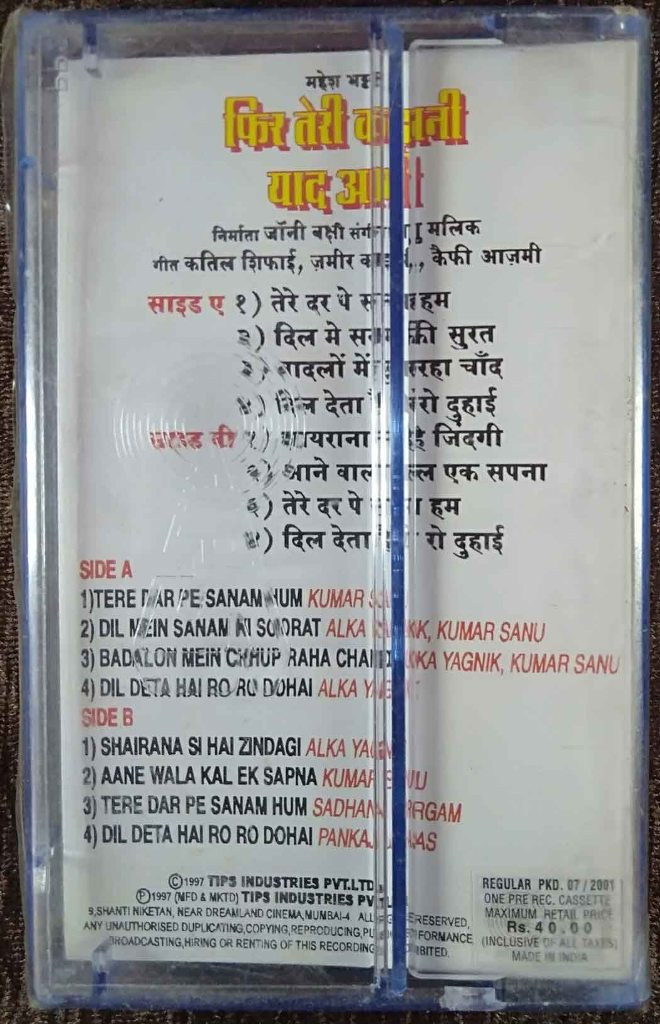 महेश भट्ट
फिर तेरी कहानी
याद आयी
निर्माता जॉनी बक्षी संगीत मलिक
गीत कतिल शिफाई, ज़मीर कैफी आज़मी
साइड ए १) तेरे दर पे सनम हम
२) दिल मे सनम की सुरत
३) बादलों में रहा चाँद
४) दिल देता है रो दुहाई
साइड बी १) शायराना है जिंदगी
२) आने वाला कल एक सपना
३) तेरे दर पे सनम हम
४) दिल देता है रो दुहाई
SIDE A
1)TERE DAR PE SANAM HUM KUMAR SANU
2) DIL MEIN SANAM KI SOORAT ALKA YAGNIK, KUMAR SANU
3) BADALON MEIN CHHUP RAHA CHAND ALKA YAGNIK, KUMAR SANU
4) DIL DETA HAI RO RO DOHAI ALKA YAGNIK
SIDE B
1) SHAIRANA SI HAI ZINDAGI ALKA YAGNIK
2) AANE WALA KAL EK SAPNA KUMAR SANU
3) TERE DAR PE SANAM HUM SADHANA SARGAM
4) DIL DETA HAI RO RO DOHAI PANKAJ UDHAS
©1997 TIPS INDUSTRIES PVT.LTD.
℗1997 (MFD & MKTD) TIPS INDUSTRIES PVT LTD
9,SHANTI NIKETAN, NEAR DREAMLAND CINEMA,MUMBAI-4 ALL RIGHTS RESERVED,
ANY UNAUTHORISED DUPLICATING,COPYING,REPRODUCING,PUBLIC PERFORMANCE
BROADCASTING,HIRING OR RENTING OF THIS RECORDING PROHIBITED.
REGULAR PKD. 07/2001
ONE PRE REC. CASSETTE
MAXIMUM RETAIL PRICE
Rs.40.00
(INCLUSIVE OF ALL TAXES)
MADE IN INDIA